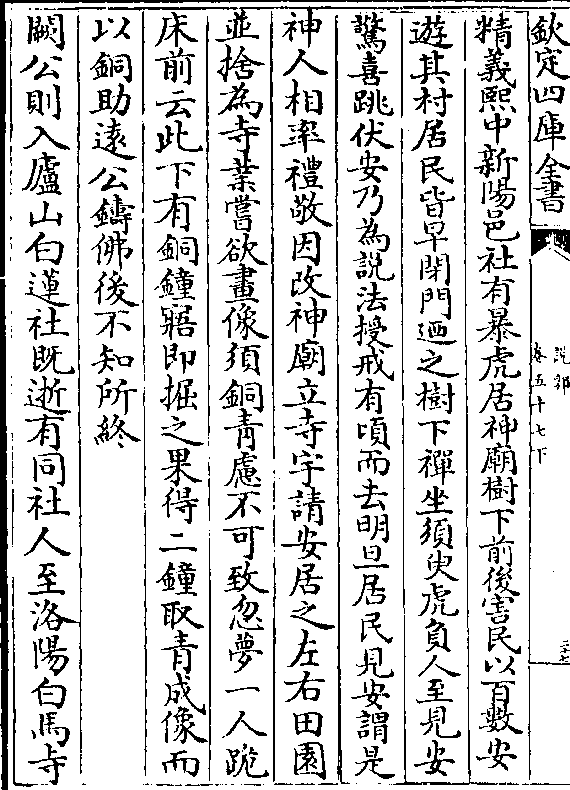 欽定四庫全書
說郛
卷五十七下
二十七
精義熙中新陽邑社有暴虎居神廟樹下前後害民以百數安
遊其村居民皆早閉門廼之樹下禪坐須臾虎負人至見安
驚喜跳伏安乃為說法授戒有頃而去明旦居民見安謂是
神人相率禮敬因改神廟立寺宇請安居之左右田園
並捨為寺業嘗欲畫像須銅青慮不可致忽夢一人跪
床前云此下有銅鐘寤即掘之果得二鐘取青成像而
以銅助遠公鑄佛後不知所終
闕公則入廬山白蓮社既逝有同社人至洛陽白馬寺